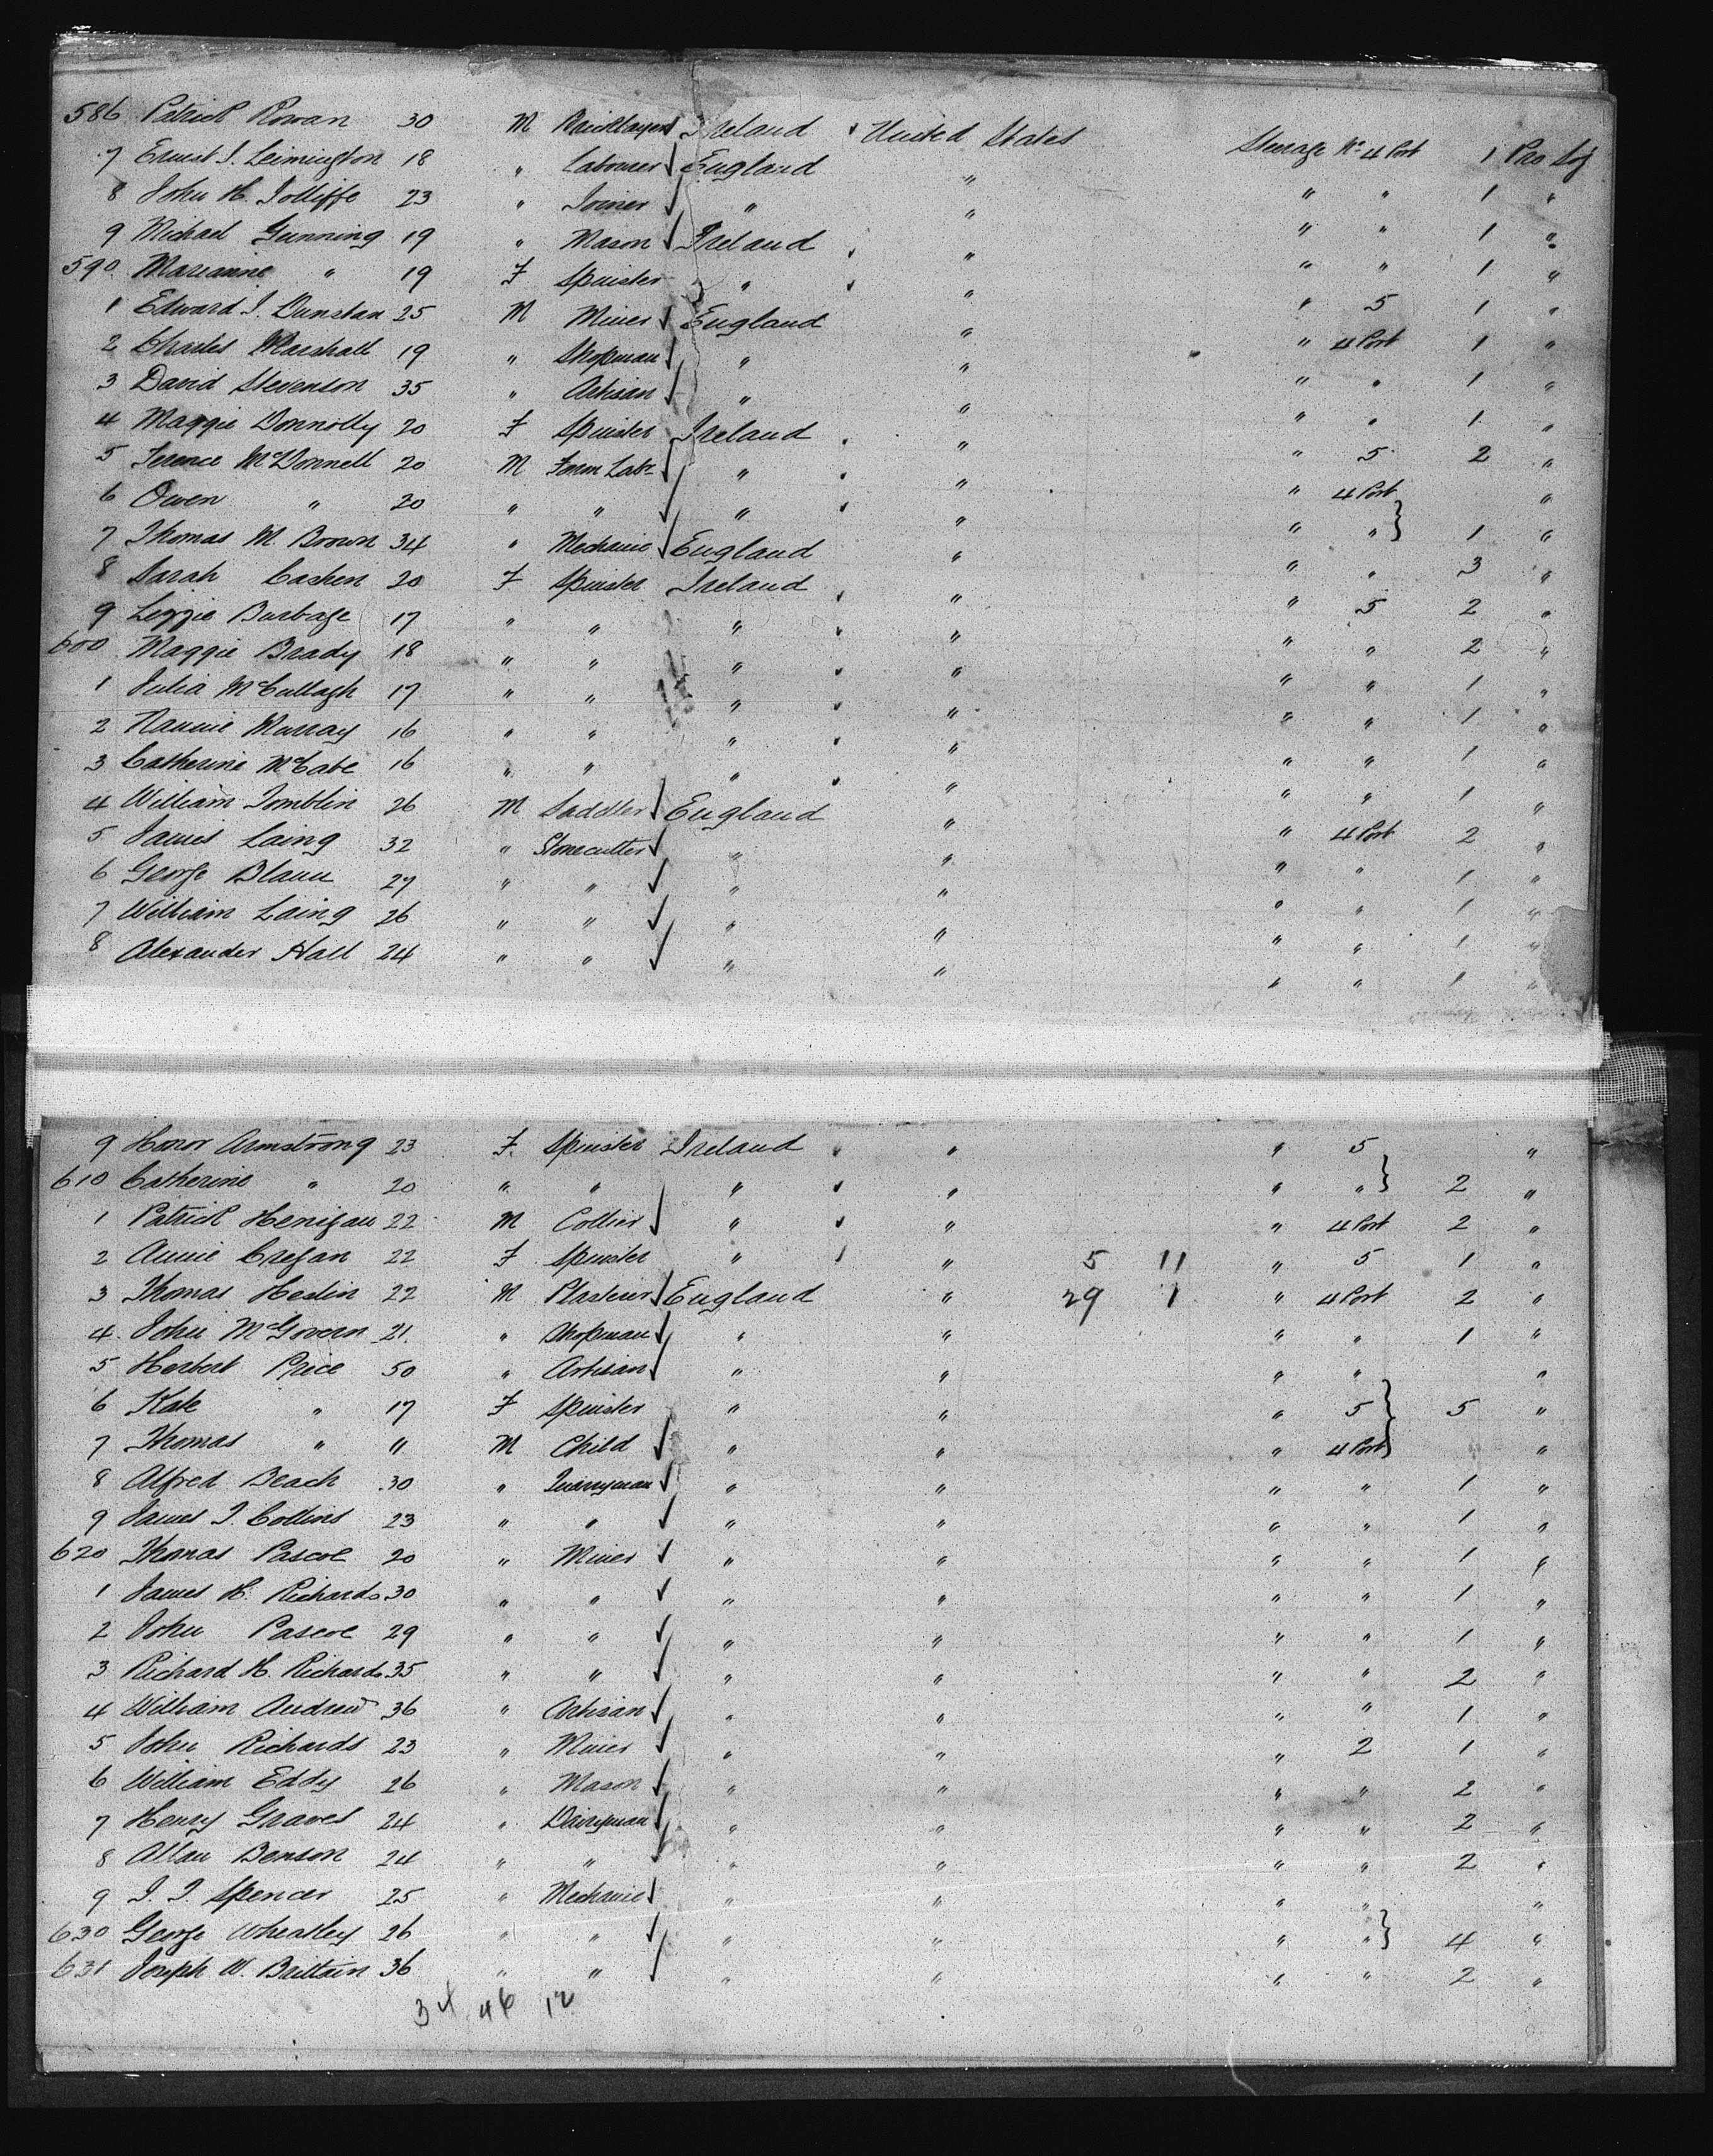 586 Patrick Rowan 30 M Bricklayer Ireland United States Steerage No 4 Port 1 Pro Soj
7 Ernest J. Leimington 18 " Labourer England " " " 1 "
8 John H. Jolliffe 23 " Joiner " " " " 1 "
9 Michael Gunning 19 " Mason Ireland " " " 1 "
590 Marianne " 19 F Spinster " " " 5 1 "
1 Edward J. Dunstan 25 M Miner England " " 4 Port 1 "
2 Charles Marshall 19 " Shopman " " " " 1 "
3 David Stevenson 35 " Artisan " " " " 1 "
4 Maggie Donnolly 20 F Spinster Ireland " " 5 2 "
5 Terence McDonnell 20 M Farm Labr " " " 4 Port "
6 Owen " 20 " " " " " " 1 "
7 Thomas M. Brown 34 " Mechanic England " " " 3 "
8 Sarah Cashen 20 F Spinster Ireland " " 5 2 "
9 Lizzie Burbage 17 " " " " " " 2 "
600 Maggie Brady 18 " " " " " " 1 "
1 Julia McCullagh 17 " " " " " " 1 "
2 Nannie Murray 16 " " " " " " 1 "
3 Catherine McCabe 16 " " " " " " 1 "
4 William Tomblin 26 M Saddler England " " 4 Port 2 "
5 James Laing 32 " Stonecutter " " " " 1 "
6 George Blann 27 " " " " " " 1 "
7 William Laing 26 " " " " " " 1 "
8 Alexander Hall 24 " " " " " " 1 "
9 Honor Armstrong 23 F. Spinster Ireland " " 5 "
610 Catherine " 20 " " " " " " 2 "
1 Patrick Henigan 22 M Collier " " " 4 Port 2 "
2 Annie Cregan 22 F Spinster " " 5 11 " 5 1 "
3 Thomas Heslin 22 M Plasterer England " 29 1 " 4 Port 2 "
4 John McGovern 21 " Shopman " " " " 1 "
5 Herbert Price 50 " Artisan " " " " "
6 Kate " 17 F Spinster " " " 5 5 "
7 Thomas " 11 M Child " " " 4 Port "
8 Alfred Beach 30 " Quarryman " " " " 1 "
9 James J. Collins 23 " " " " " " 1 "
620 Thomas Pascoe 20 " Miner " " " " 1 "
1 James H. Richards 30 " " " " " " 1 "
2 John Pascoe 29 " " " " " " 1 "
3 Richard H. Richards 35 " " " " " " 2 "
4 William Andrew 36 " Artisan " " " " 1 "
5 John Richards 23 " Miner " " " 2 1 "
6 William Eddy 26 " Mason " " " " 2 "
7 Henry Graves 24 " Dairyman " " " " 2 "
8 Allan Benson 24 " " " " " " 2 "
9 J. J. Spencer 25 " Mechanic " " " " "
630 George Wheatley 26 " " " " " " 4 "
631 Joseph W. Brittain 36 " " " " " " 2 "
34 46 12